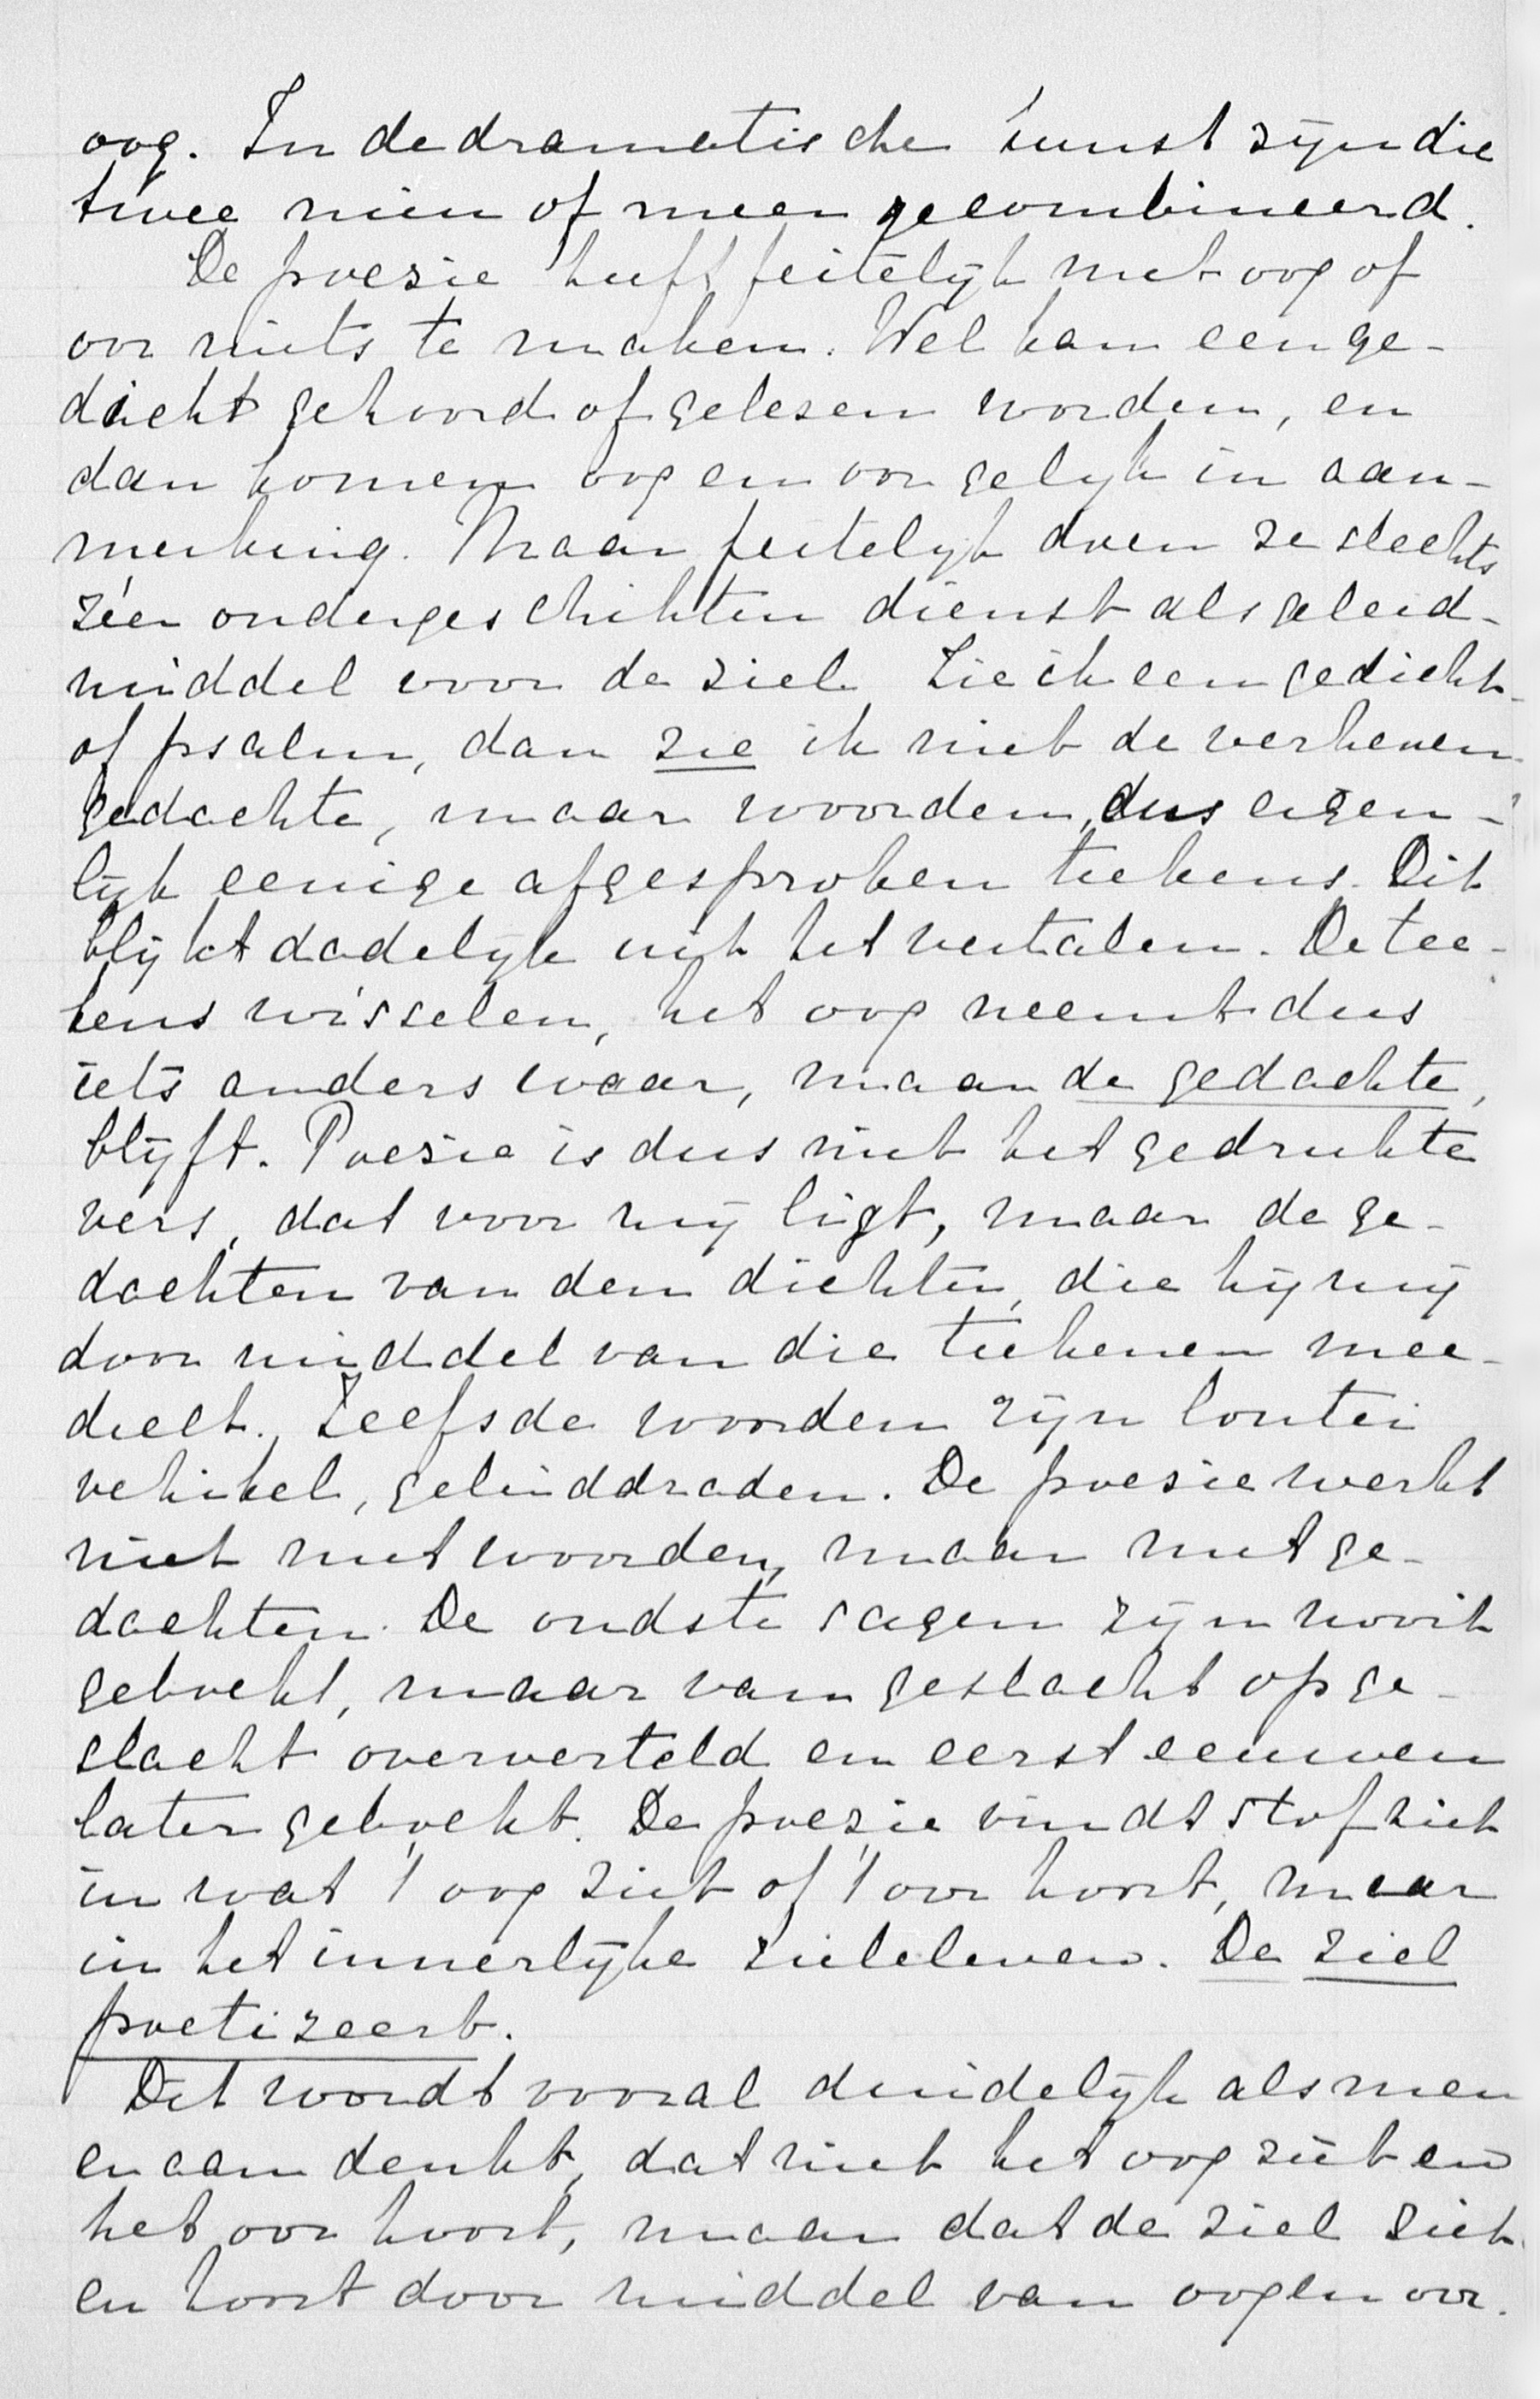 oog. In de dramatische kunst zijn die
twee min of meer gecombineerd.
De poesie heeft feitelijk met oog of
oor niets te maken. Wel kan een ge-
dicht gehoord of gelesen worden, en
dan komen oog en oor gelijk in aan-
merking. Maar feitelijk doen ze slechts
zéér ondergeschikten dienst als geleid-
middel voor de ziel. Zie ik een gedicht
of psalm, dan zie ik niet de verheven
gedachte, maar woorden, dus eigen-
lijk eenige afgesproken teekens. Dit
blijkt dadelijk uit het vertalen. De tee-
kens wisselen, het oog neemt dus
iets anders waar, maar de gedachte,
blijft. Poesie is dus niet het gedrukte
vers, dat voor mij ligt, maar de ge-
dachten van den dichter, die hij mij
door middel van die teekenen mee-
deelt. Zelfs de woorden zijn louter
vehikel, geleiddraden. De poesie werkt
niet met woorden, maar met ge-
dachten. De oudste sagen zijn nooit
geboekt, maar van geslacht op ge-
slacht oververteld en eerst eeuwen
later geboekt. De poezie vindt stof niet
in wat 't oog ziet of 't oor hoort, maar
in het innerlijke zieleleven. De ziel
poetizeert.
Dit wordt vooral duidelijk als men
er aan denkt, dat niet het oog ziet en
het oor hoort, maar dat de ziel ziet
en hoort door middel van oog en oor.